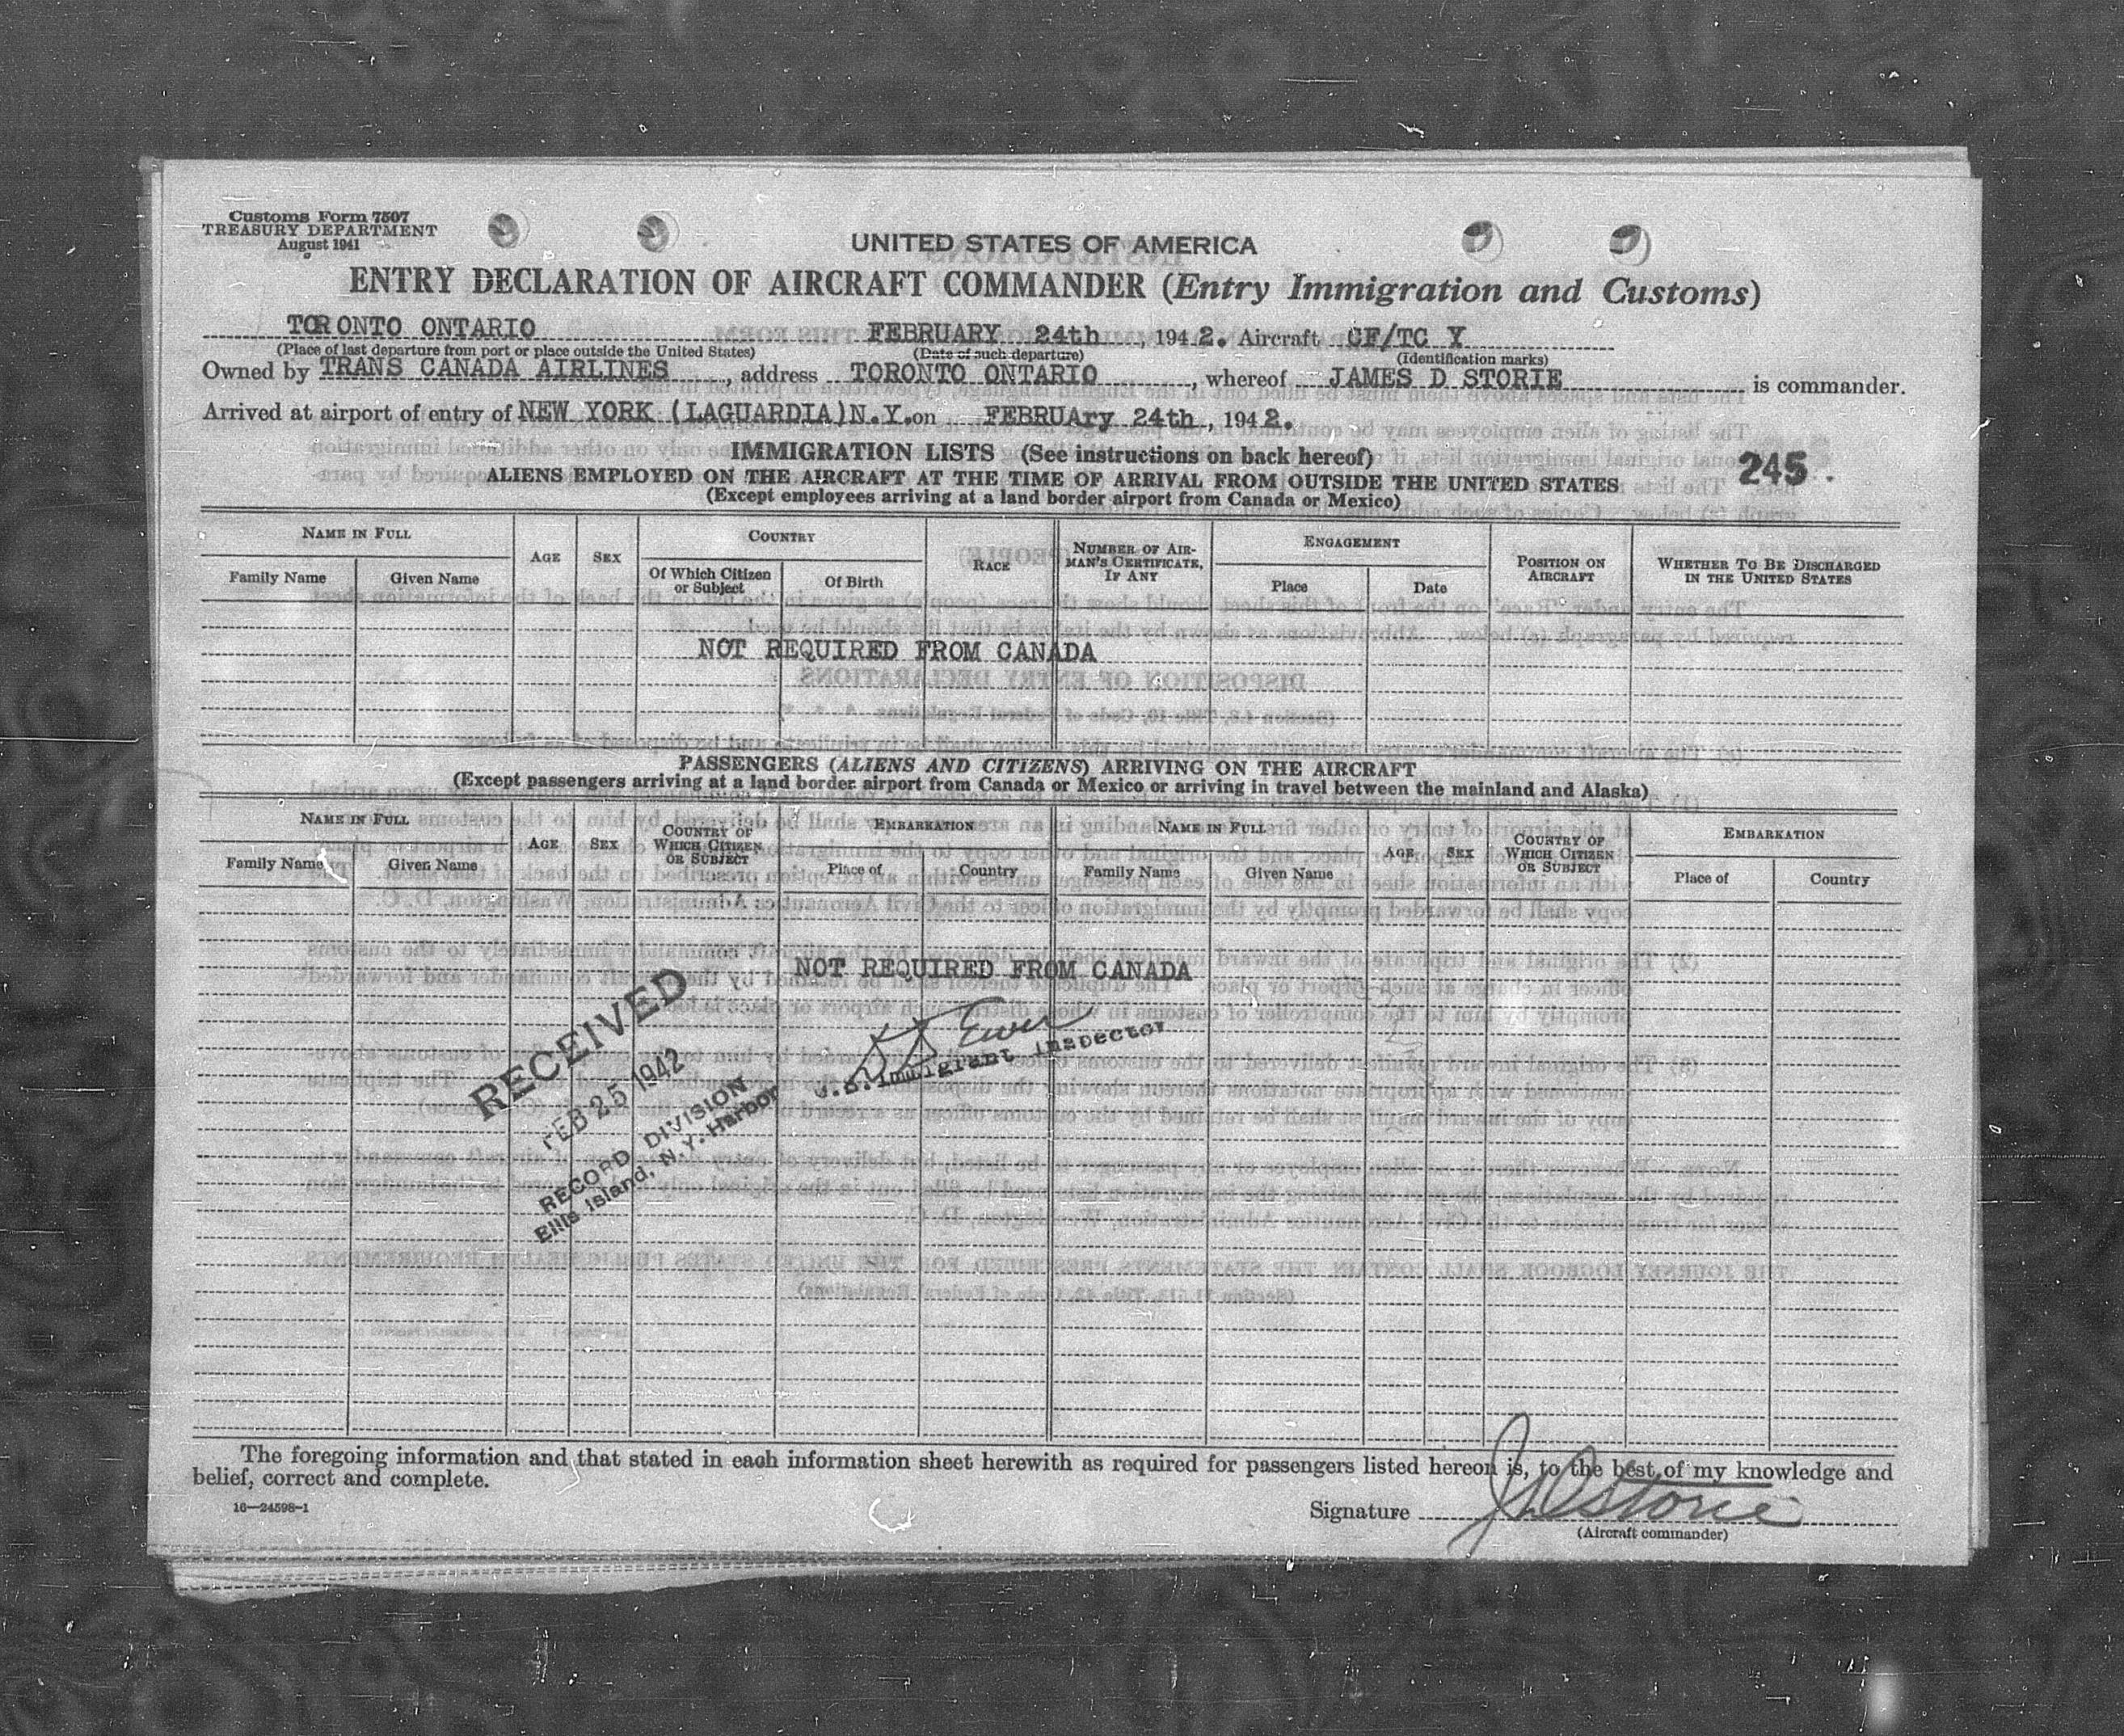 Customs Form 7507
TREASURY DEPARTMENT
August 1941
UNITED STATES OF AMERICA
ENTRY DECLARATION OF AIRCRAFT COMMANDER (Entry Immigration and Customs)
TORONTO ONTARIO FEBRUARY 24th, 1942. Aircraft CF/TC Y
(Place of last departure from port or place outside the United States) (Date of such departure) (Identification marks)
Owned by TRANS CANADA AIRLINES, address TORONTO ONTARIO, whereof JAMES D STORIE is commander.
Arrived at airport of entry of NEW YORK (LAGUARDIA)N.Y. on FEBRUARy 24th, 1942.
IMMIGRATION LISTS (See instructions on back hereof)
245.
ALIENS EMPLOYED ON THE AIRCRAFT AT THE TIME OF ARRIVAL FROM OUTSIDE THE UNITED STATES
(Except employees arriving at a land border airport from Canada or Mexico)
NAME IN FULL
Family Name Given Name
AGE
SEX
COUNTRY
Of Which Citizen or Subject
Of Birth
RACE
NUMBER OF AIRMAN'S CERTIFICATE, IF ANY
ENGAGEMENT
Place Date
POSITION ON AIRCRAFT
WHETHER TO BE DISCHARGED IN THE UNITED STATES
NOT REQUIRED FROM CANADA
PASSENGERS (ALIENS AND CITIZENS) ARRIVING ON THE AIRCRAFT
(Except passengers arriving at a land border airport from Canada or Mexico or arriving in travel between the mainland and Alaska)
NAME IN FULL
Family Name Given Name
AGE
SEX
COUNTRY OF WHICH CITIZEN OR SUBJECT
EMBARKATION
Place of Country
NAME IN FULL
Family Name Given Name
AGE
SEX
COUNTRY OF WHICH CITIZEN OR SUBJECT
EMBARKATION
Place of Country
NOT REQUIRED FROM CANADA
U.S. Immigrant Inspector
RECEIVED
FEB 25 1942
RECORD DIVISION
Ellis Island, N.Y. Harbor
The foregoing information and that stated in each information sheet herewith as required for passengers listed hereon is, to the best of my knowledge and
belief, correct and complete.
16—24598-1
Signature J D Storie
(Aircraft commander)